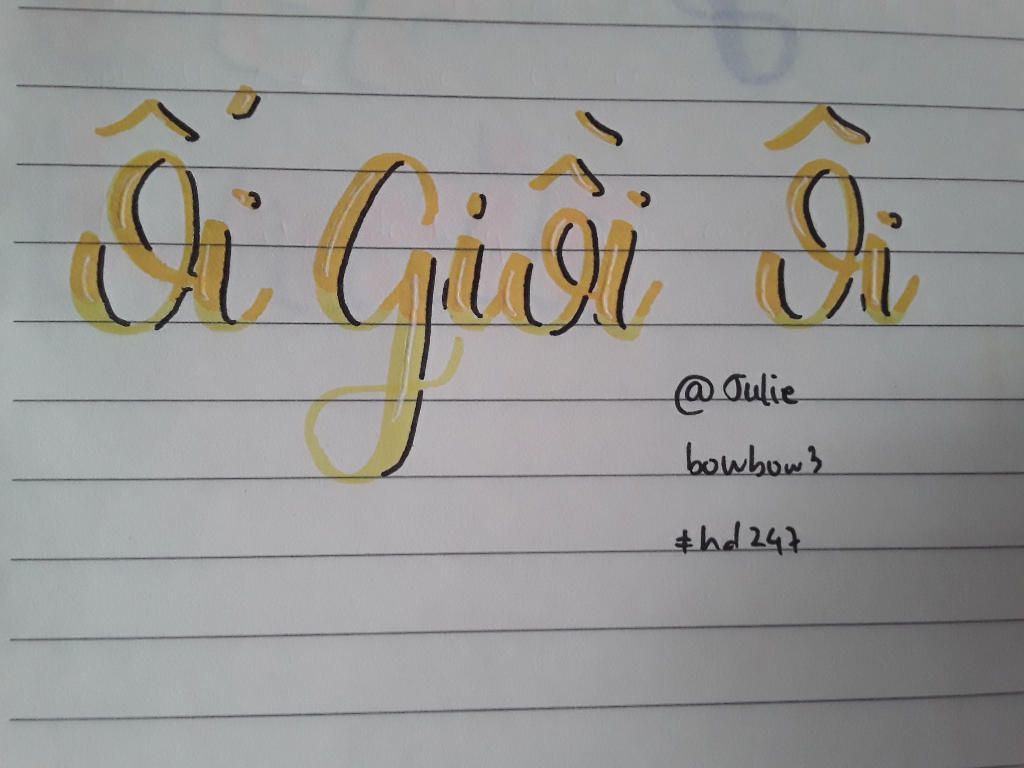 Ối Giồi Ôi
@Julie
bowbow3
#hd247